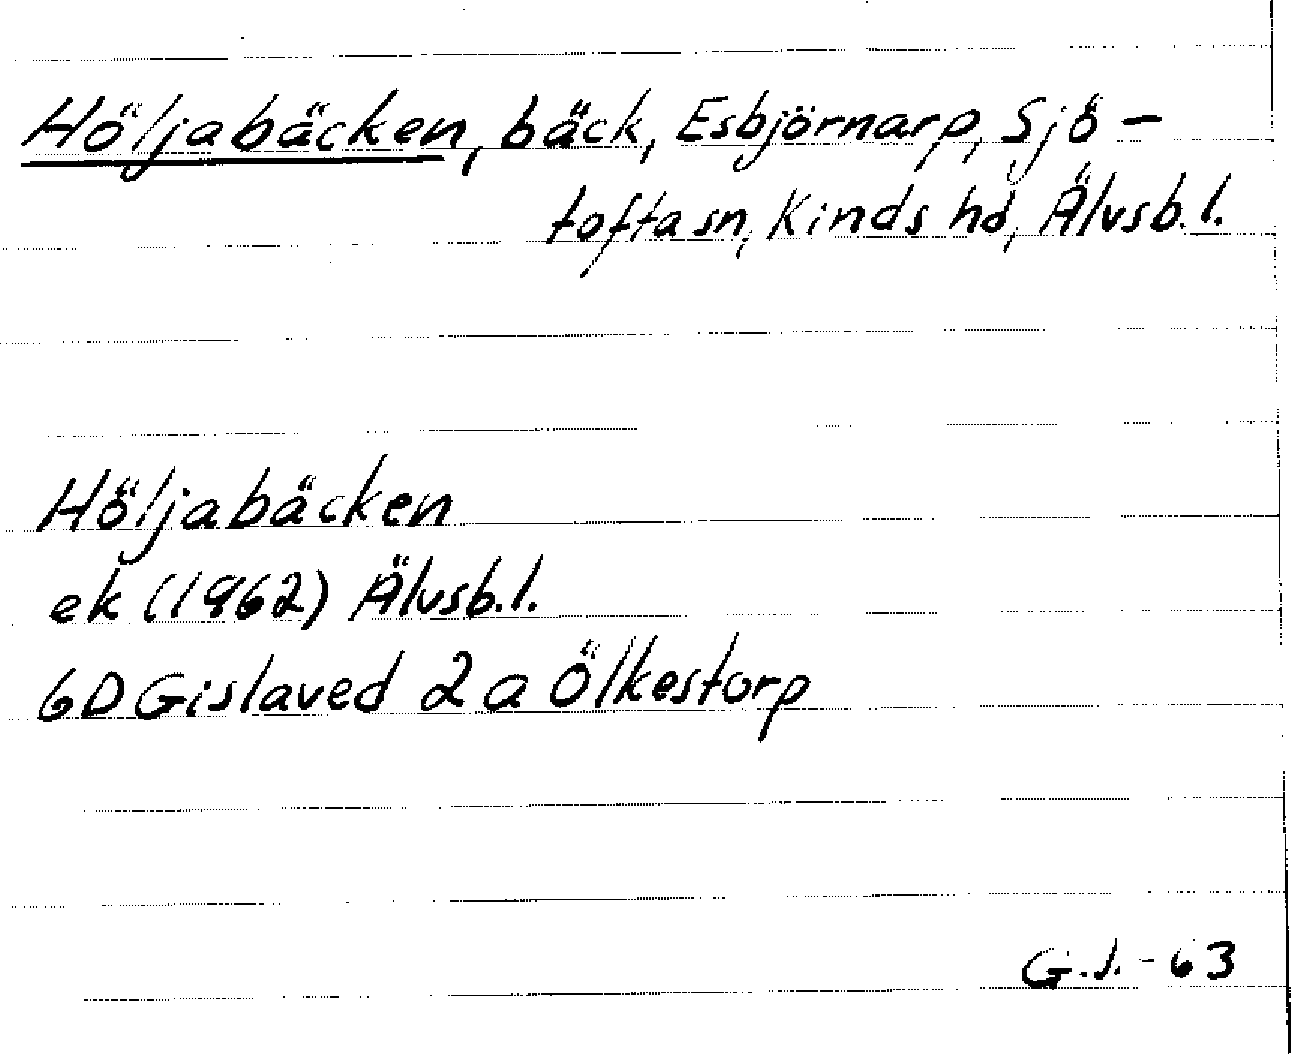 Höljabäcken, bäck, Esbjörnarp, Sjö-
tofta sn, Kinds hd, Älvsb.l.
Höljabäcken
ek (1962) Älvsb.l.
6D Gislaved 2 a Ölkestorp
G.J. - 63